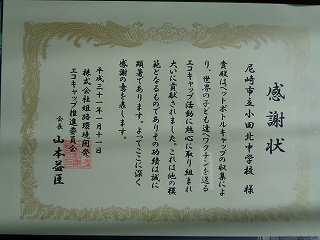 感謝状
尼崎市立小田北中学校 様
貴殿はペットボトルキャップの収集によ
り、世界の子ども達へワクチンを送る
エコキャップ活動に熱心に取り組まれ
大いに貢献されました。これは他の模
範となるものでありその功績は誠に
顕著であります。よってここに深く
感謝の意を表します。
平成三十一年一月十一日
株式会社姫路環境開発
エコキャップ推進委員会
会長 山本益臣